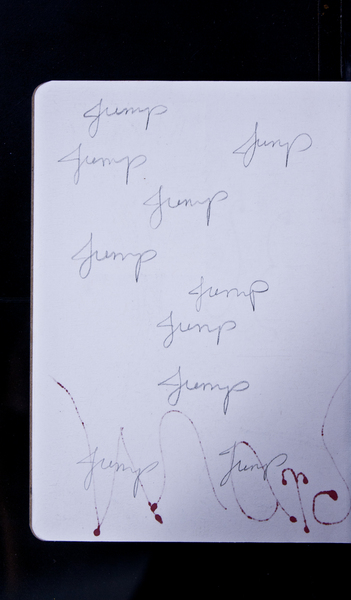 Jump
Jump
Jump
Jump
Jump
Jump
Jump
Jump
Jump
Jump